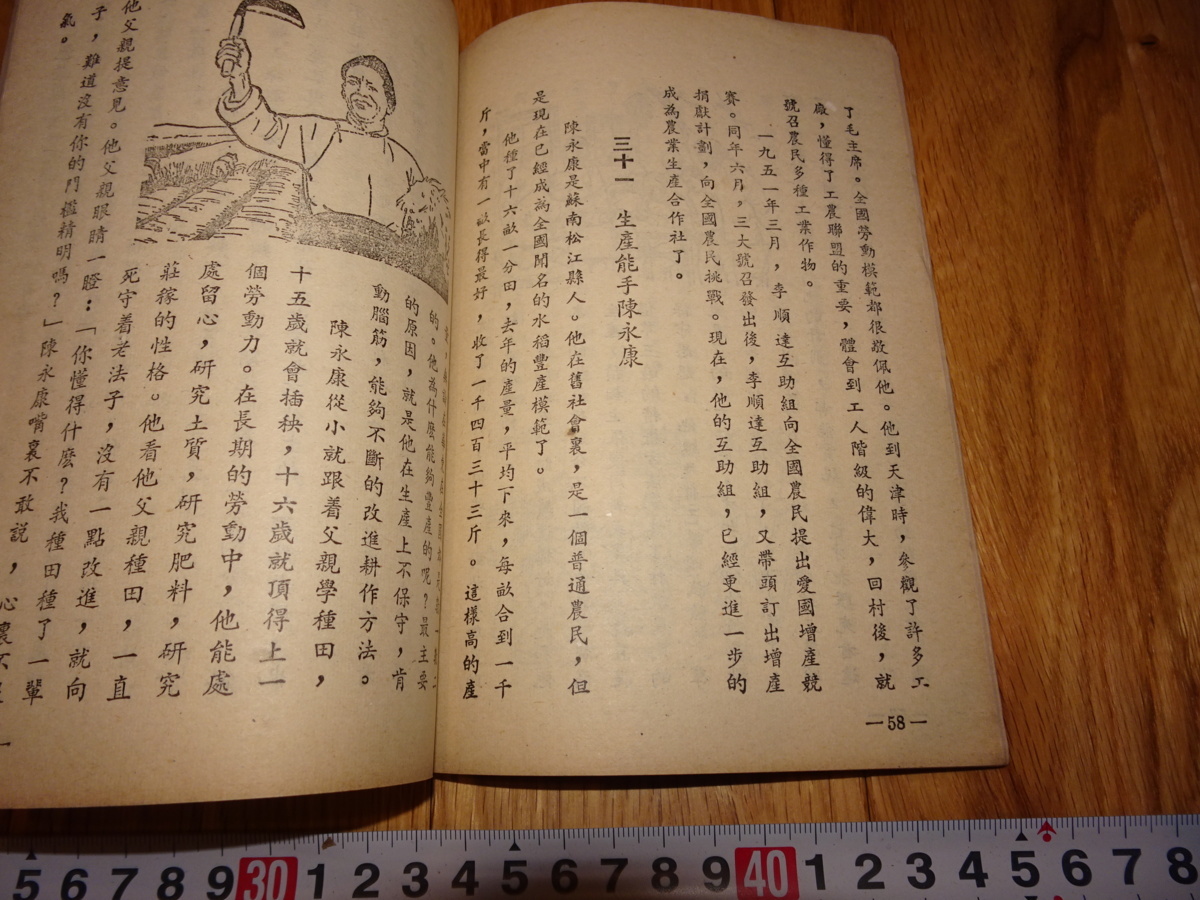 了毛主席。全國勞動模範都很敬佩他。他到天津時，參觀了許多工
廠，懂得了工農聯盟的重要，體會到工人階級的偉大，回村後，就
號召農民多種工業作物。
一九五一年三月，李順達互助組向全國農民提出愛國增產競
賽。同年六月，三大號召發出後，李順達互助組，又帶頭訂出增產
捐獻計劃，向全國農民挑戰。現在，他的互助組，已經更進一步的
成為農業生產合作社了。
三十一　生產能手陳永康
陳永康是蘇南松江縣人。他在舊社會裏，是一個普通農民，但
是現在已經成為全國聞名的水稻豐產模範了。
他種了十六畝一分田，去年的產量，平均下來，每畝合到一千
斤，當中有一畝長得最好，收了一千四百三十三斤。這樣高的產
—58—
的。他為什麼能夠豐產的呢？最主要
的原因，就是他在生產上不保守，肯
動腦筋，能夠不斷的改進耕作方法。
陳永康從小就跟着父親學種田，
十五歲就會插秧，十六歲就頂得上一
個勞動力。在長期的勞動中，他能處
處留心，研究土質，研究肥料，研究
莊稼的性格。他看他父親種田，一直
死守着老法子，沒有一點改進，就向
他父親提意見。他父親眼睛一瞪：「你懂得什麼？我種田種了一輩
子，難道沒有你的門檻精明嗎？」陳永康嘴裏不敢說，心裏不
氣。
5 6 7 8 9 30 1 2 3 4 5 6 7 8 9 40 1 2 3 4 5 6 7 8